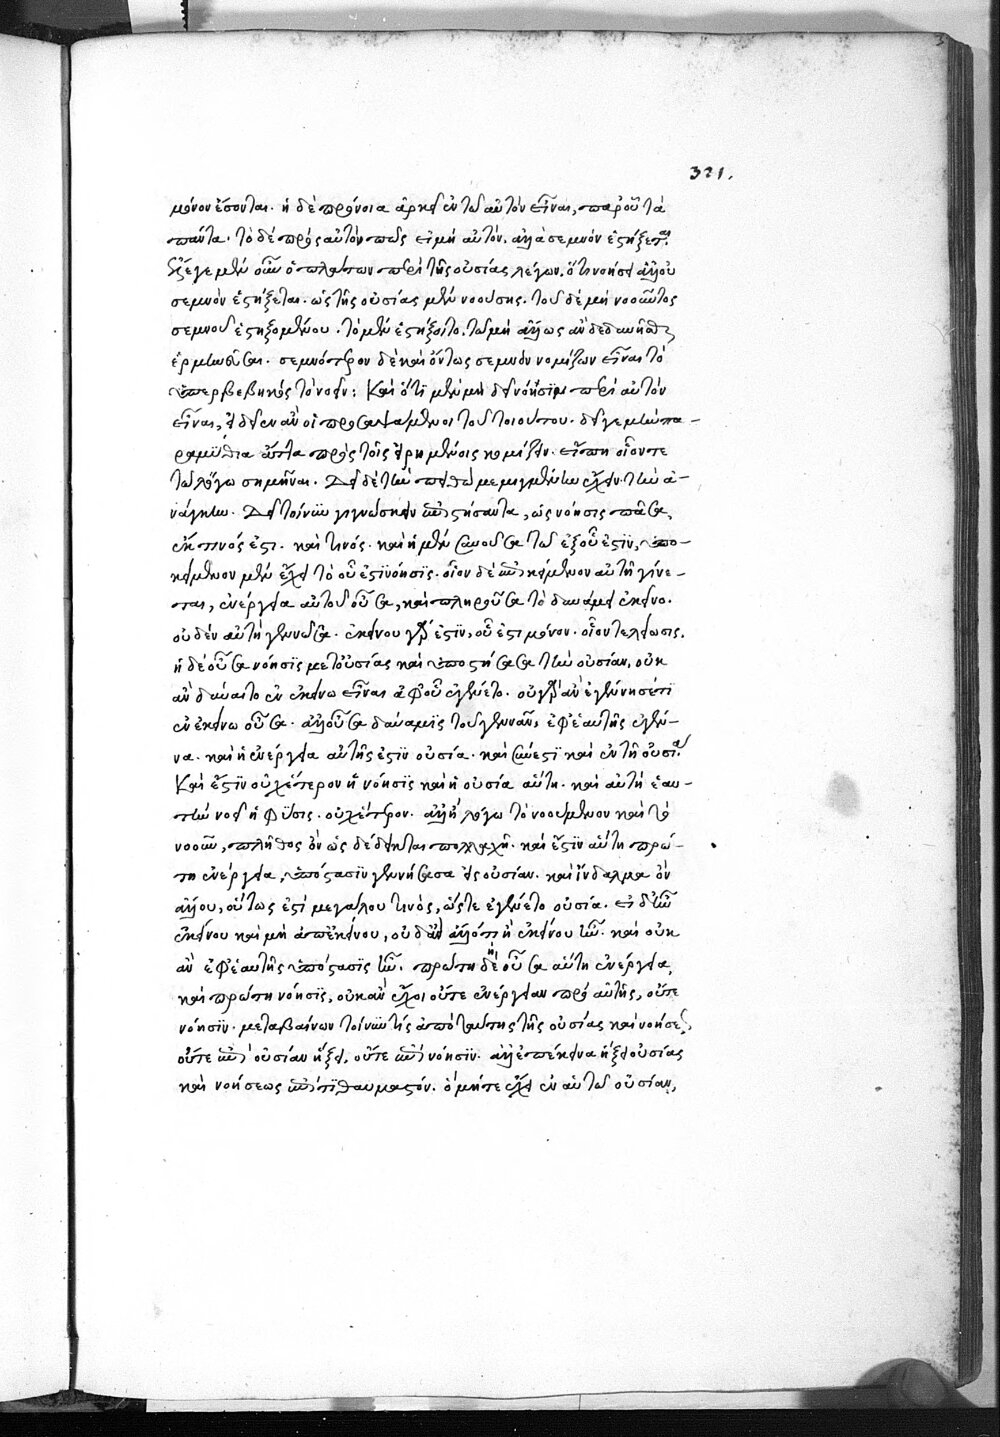 321.
μόνον ἔσονται. ἡ δὲ πρόνοια ἀρκεῖ ἐν τῶ αὐτὸν εἶναι, παρ' οὗ τὰ
πάντα. τὸ δὲ πρὸς αὐτὸν πῶς εἰ μὴ αὐτόν. ἀλλὰ σεμνὸν ἑστήξεται.
ἔλεγε μὲν οὖν ὁ πλάτων περὶ τῆς οὐσίας λέγων. ὅτι νοήσει ἀλλ' οὐ
σεμνὸν ἑστήξεται. ὡς τῆς οὐσίας μὲν νοούσης. τοῦ δὲ μὴ νοοῦντος
σεμνοῦ ἑστηξομένου. τὸ μὲν ἑστήξοιτο. τῶ μὴ ἄλλως ἂν δεδυνῆσθαι
ἑρμηνεῦσαι. σεμνότερον δὲ καὶ ὄντως σεμνὸν νομίζων εἶναι τὸ
ὑπερβεβηκὸς τὸ νοεῖν: Καὶ ὅτι μὲν μὴ δεῖ νόησιν περὶ αὐτὸν
εἶναι, εἰδεῖεν ἂν οἱ προσαψάμενοι τοῦ τοιούτου. δεῖ γε μὴν πα-
ραμύθια ἄττα πρὸς τοῖς εἰρημένοις κομίζειν. εἴ πη οἷόν τε
τῶ λόγω σημῆναι. Δεῖ δὲ τὴν πειθὼ μεμιγμένην ἔχειν τὴν ἀ-
νάγκην. Δεῖ τοίνυν γιγνώσκειν ἐπιστήσαντα, ὡς νόησις πᾶσα,
ἐκ τινός ἐστι. καὶ τινός. καὶ ἡ μὲν συνοῦσα τῶ ἐξ οὗ ἐστιν, ὑπο-
κείμενον μὲν ἔχει τὸ οὗ ἐστι νόησις. οἷον δὲ ἐπικείμενον αὐτὴ γίνε-
ται, ἐνέργεια αὐτοῦ οὖσα, καὶ πληροῦσα τὸ δυνάμει ἐκεῖνο.
οὐδὲν αὐτὴ γεννῶσα. ἐκείνου γάρ ἐστιν, οὗ ἐστι μόνον. οἷον τελείωσις.
ἡ δὲ οὖσα νόησις μετ' οὐσίας καὶ ὑποστήσασα τὴν οὐσίαν, οὐκ
ἂν δύναιτο ἐν ἐκείνω εἶναι ἀφ' οὗ ἐγένετο. οὐ γὰρ ἂν ἐγέννησέ τι
ἐν ἐκείνω οὖσα. ἀλλ' οὖσα δύναμις τοῦ γεννᾶν, ἐφ' ἑαυτῆς ἐγέν-
να. καὶ ἡ ἐνέργεια αὐτῆς ἐστιν οὐσία. καὶ σύνεστι καὶ ἐν τῇ οὐσία.
Καὶ ἔστιν οὐχ ἕτερον ἡ νόησις καὶ ἡ οὐσία αὕτη. καὶ αὐτὴ ἑαυ-
τὴν νοεῖ ἡ φύσις. οὐχ ἕτερον. ἀλλ' ἢ λόγω τὸ νοούμενον καὶ τὸ
νοοῦν, πλῆθος ὂν ὡς δέδεικται πολλαχῆ. καὶ ἔστιν αὕτη πρώ-
τη ἐνέργεια, ὑπόστασιν γεννήσασα εἰς οὐσίαν. καὶ ἴνδαλμα ὂν
ἄλλου, οὕτως ἐστὶ μεγάλου τινὸς, ὥστε ἐγένετο οὐσία. εἰ δ' ἦν
ἐκείνου καὶ μὴ ἀπ' ἐκείνου, οὐδ' ἂν ἄλλό τι ἢ ἐκείνου ἦν. καὶ οὐκ
ἂν ἐφ' ἑαυτῆς ὑπόστασις ἦν. πρώτη δὴ οὖσα αὕτη ἐνέργεια,
καὶ πρώτη νόησις, οὐκ ἂν ἔχοι οὔτε ἐνέργειαν πρὸ αὐτῆς, οὔτε
νόησιν. μεταβαίνων τοίνυν τίς ἀπὸ ταύτης τῆς οὐσίας καὶ νοήσεως,
οὔτε ἐπὶ οὐσίαν ἥξει, οὔτε ἐπὶ νόησιν. ἀλλ' ἐπέκεινα ἥξει οὐσίας
καὶ νοήσεως ἐπί τι θαυμαστόν. ὃ μήτε ἔχει ἐν αὑτῶ οὐσίαν,